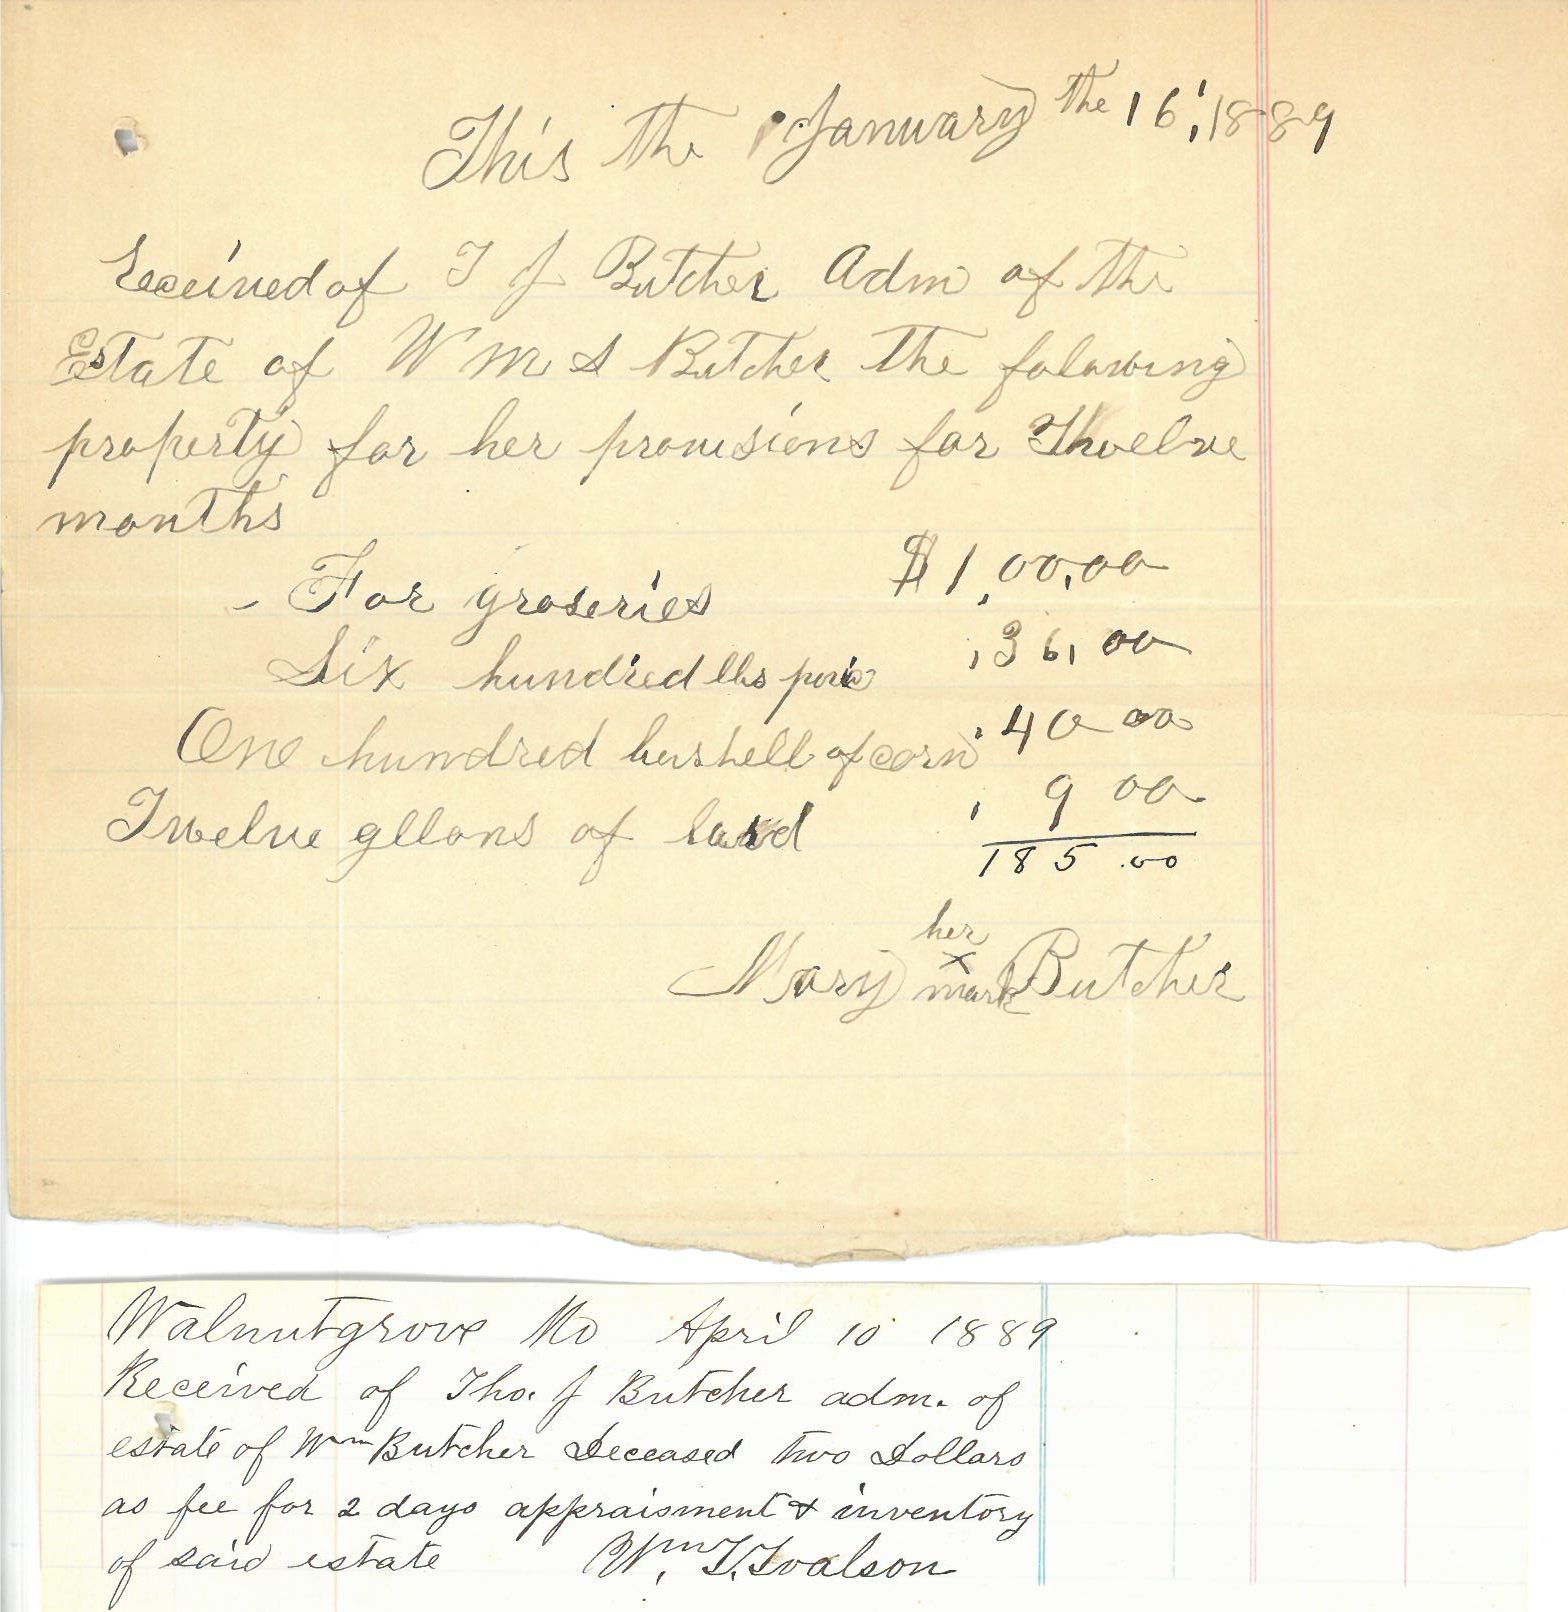 This the January the 16, 1889
Received of T J Butcher Adm of the
Estate of W M S Butcher the folawing
property for her provisions for Thwelve
months
- For groseries $1,00.00
Six hundred lbs pork ,36,00
One hundred bushell of corn 40 00
Twelve gllons of lard , 9 00
185.00
her
Mary x Butcher
mark
Walnutgrove Mo April 10 1889
Received of Tho. J Butcher adm. of
estate of Wm Butcher Deceased two Dollars
as fee for 2 days appraisment & inventory
of said estate Wm. T.